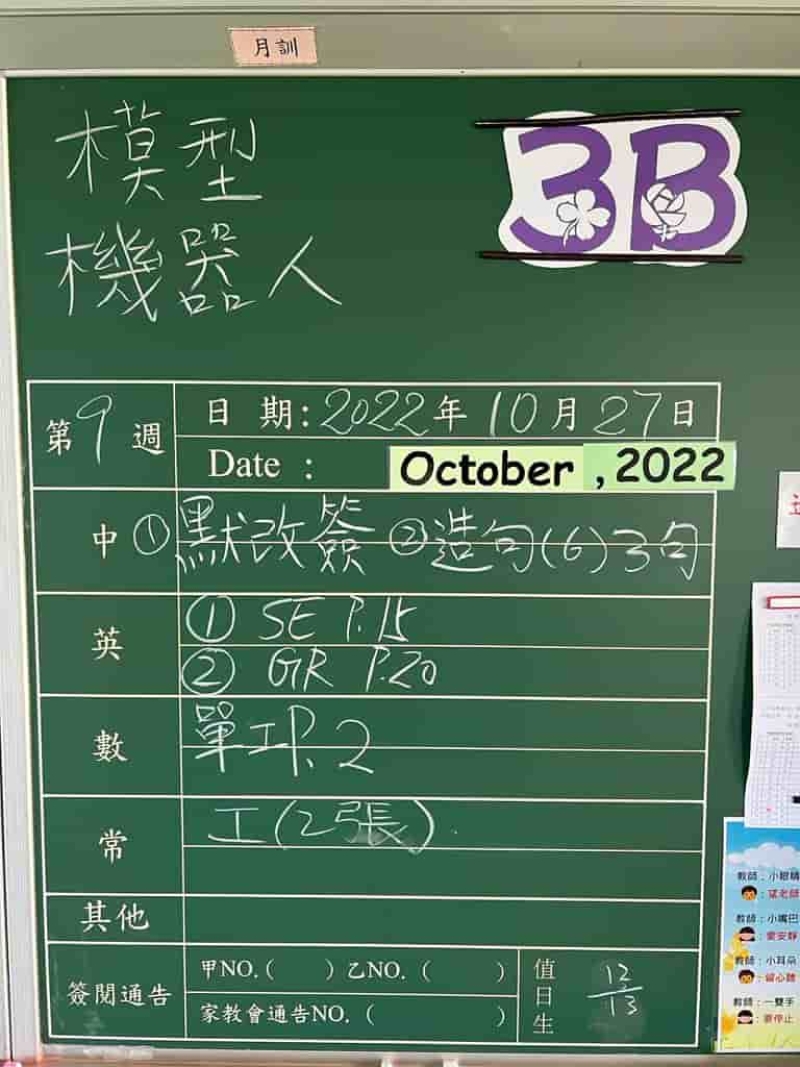 月訓
模型
機器人
3B
第9週
日 期：2022年 10月 27日
Date :
October , 2022
中 ①默改簽 ②造句(6)3句
英
① SE P.15
② GR P.20
數
單工P.2
常
工(2張)
其他
簽閱通告
甲NO.( ) 乙NO. ( )
家教會通告NO. ( )
值日生
12
13
教師：小眼睛
：望老師
教師：小嘴巴
：要安靜
教師：小耳朵
：留心聽
教師：一雙手
：要停止